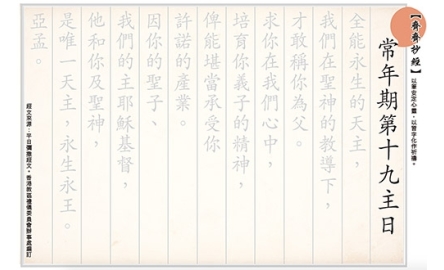 【齊齊抄經】
以筆安定心靈，以習字化作祈禱。
常年期第十九主日
全能永生的天主，
我們在聖神的教導下，
才敢稱你為父。
求你在我們心中，
培育你義子的精神，
俾能堪當承受你
許諾的產業。
因你的聖子、
我們的主耶穌基督，
他和你及聖神，
是唯一天主，永生永王。
亞孟。
經文來源：半日彌撒經文。香港教區禮儀委員會辦事處編訂